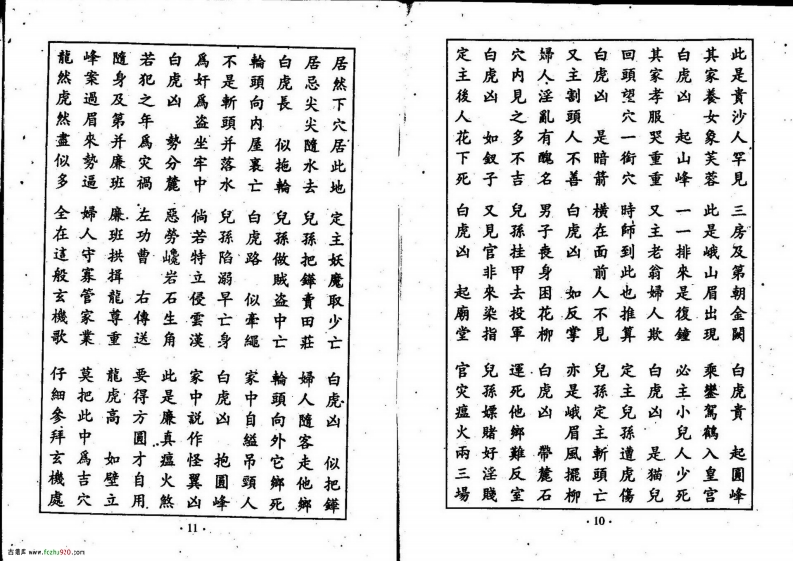 此是貴沙人罕見　三房及第朝金闕　白虎貴　起圓峰
其家養女象芙蓉　此是峨山眉出現　乘鑾駕鶴入皇宮
白虎凶　起山峰　一一排來是復鐘　必主小兒人少死
其家孝服哭重重　又主老翁婦人欺　白虎凶　是猫兒
回頭望穴一銜穴　時師到此也推算　定主兒孫遭虎傷
白虎凶　是暗箭　橫在面前人不見　兒孫定主斬頭亡
又主割頭人不善　白虎凶　如反掌　亦是峨眉風擺柳
婦人淫亂有醜名　男子喪身困花柳　白虎凶　帶麓石
穴內見之多不吉　兒孫挂甲去投軍　運死他鄉難反室
白虎凶　如釵子　又見官非來染指　兒孫嫖賭好淫賤
定主後人花下死　白虎凶　起廟堂　官灾瘟火兩三場
·10·
居然下穴居此地　定主妖魔取少亡　白虎凶　似把鏵
居忌尖尖隨水去　兒孫把鏵賣田莊　婦人隨客走他鄉
白虎長　似拖輪　兒孫做賊盜中亡　輪頭向外它鄉死
輪頭向內屋裏亡　白虎路　似牽繩　家中自縊吊頸人
不是斬頭并落水　兒孫陷溺早亡身　白虎凶　抱圓峰
爲奸爲盜坐牢中　倘若特立侵雲漢　家中説作怪異凶
白虎凶　勢分麓　惡勞巉岩石生角　此是廉真瘟火煞
若犯之年爲灾禍　左功曹　右傳送　要得方圓才自用
隨身及第并廉班　廉班拱揖龍尊重　龍虎高　如壁立
峰案過眉來勢逼　婦人守寡管家業　莫把此中爲吉穴
龍然虎然盡似多　全在這般玄機歌　仔細參拜玄機處
·11·
www.fczhu920.com